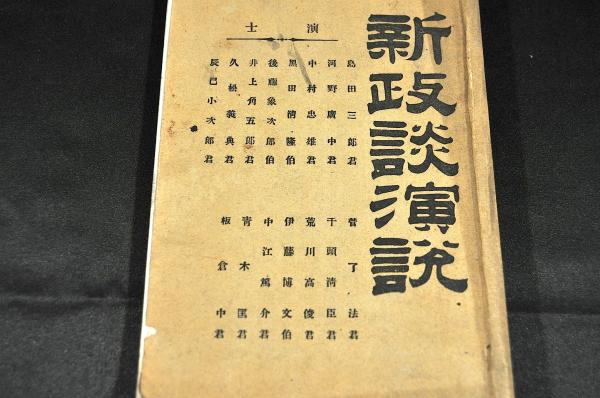 新政談演説
演士
島田三郎君
河野廣中君
中村忠雄君
黒田清隆伯
後藤象次郎伯
井上角五郎君
久松義典君
辰巳小次郎君
菅了法君
千頭清臣君
荒川高俊君
伊藤博文伯
中江篤介君
青木匡君
板倉中君